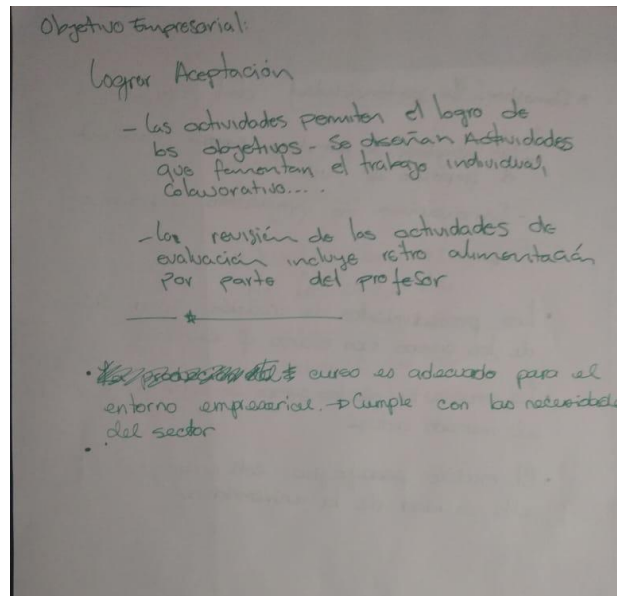 Objetivo Empresarial:
Lograr Aceptación
- Las actividades permiten el logro de
los objetivos - Se diseñan Actividades
que fomentan el trabajo individual,
Colavorativo....
- La revisión de las actividades de
evaluación incluye retro alimentación
Por parte del profesor
• curso es adecuado para el
entorno empresarial. → Cumple con las necesidades
del sector
•